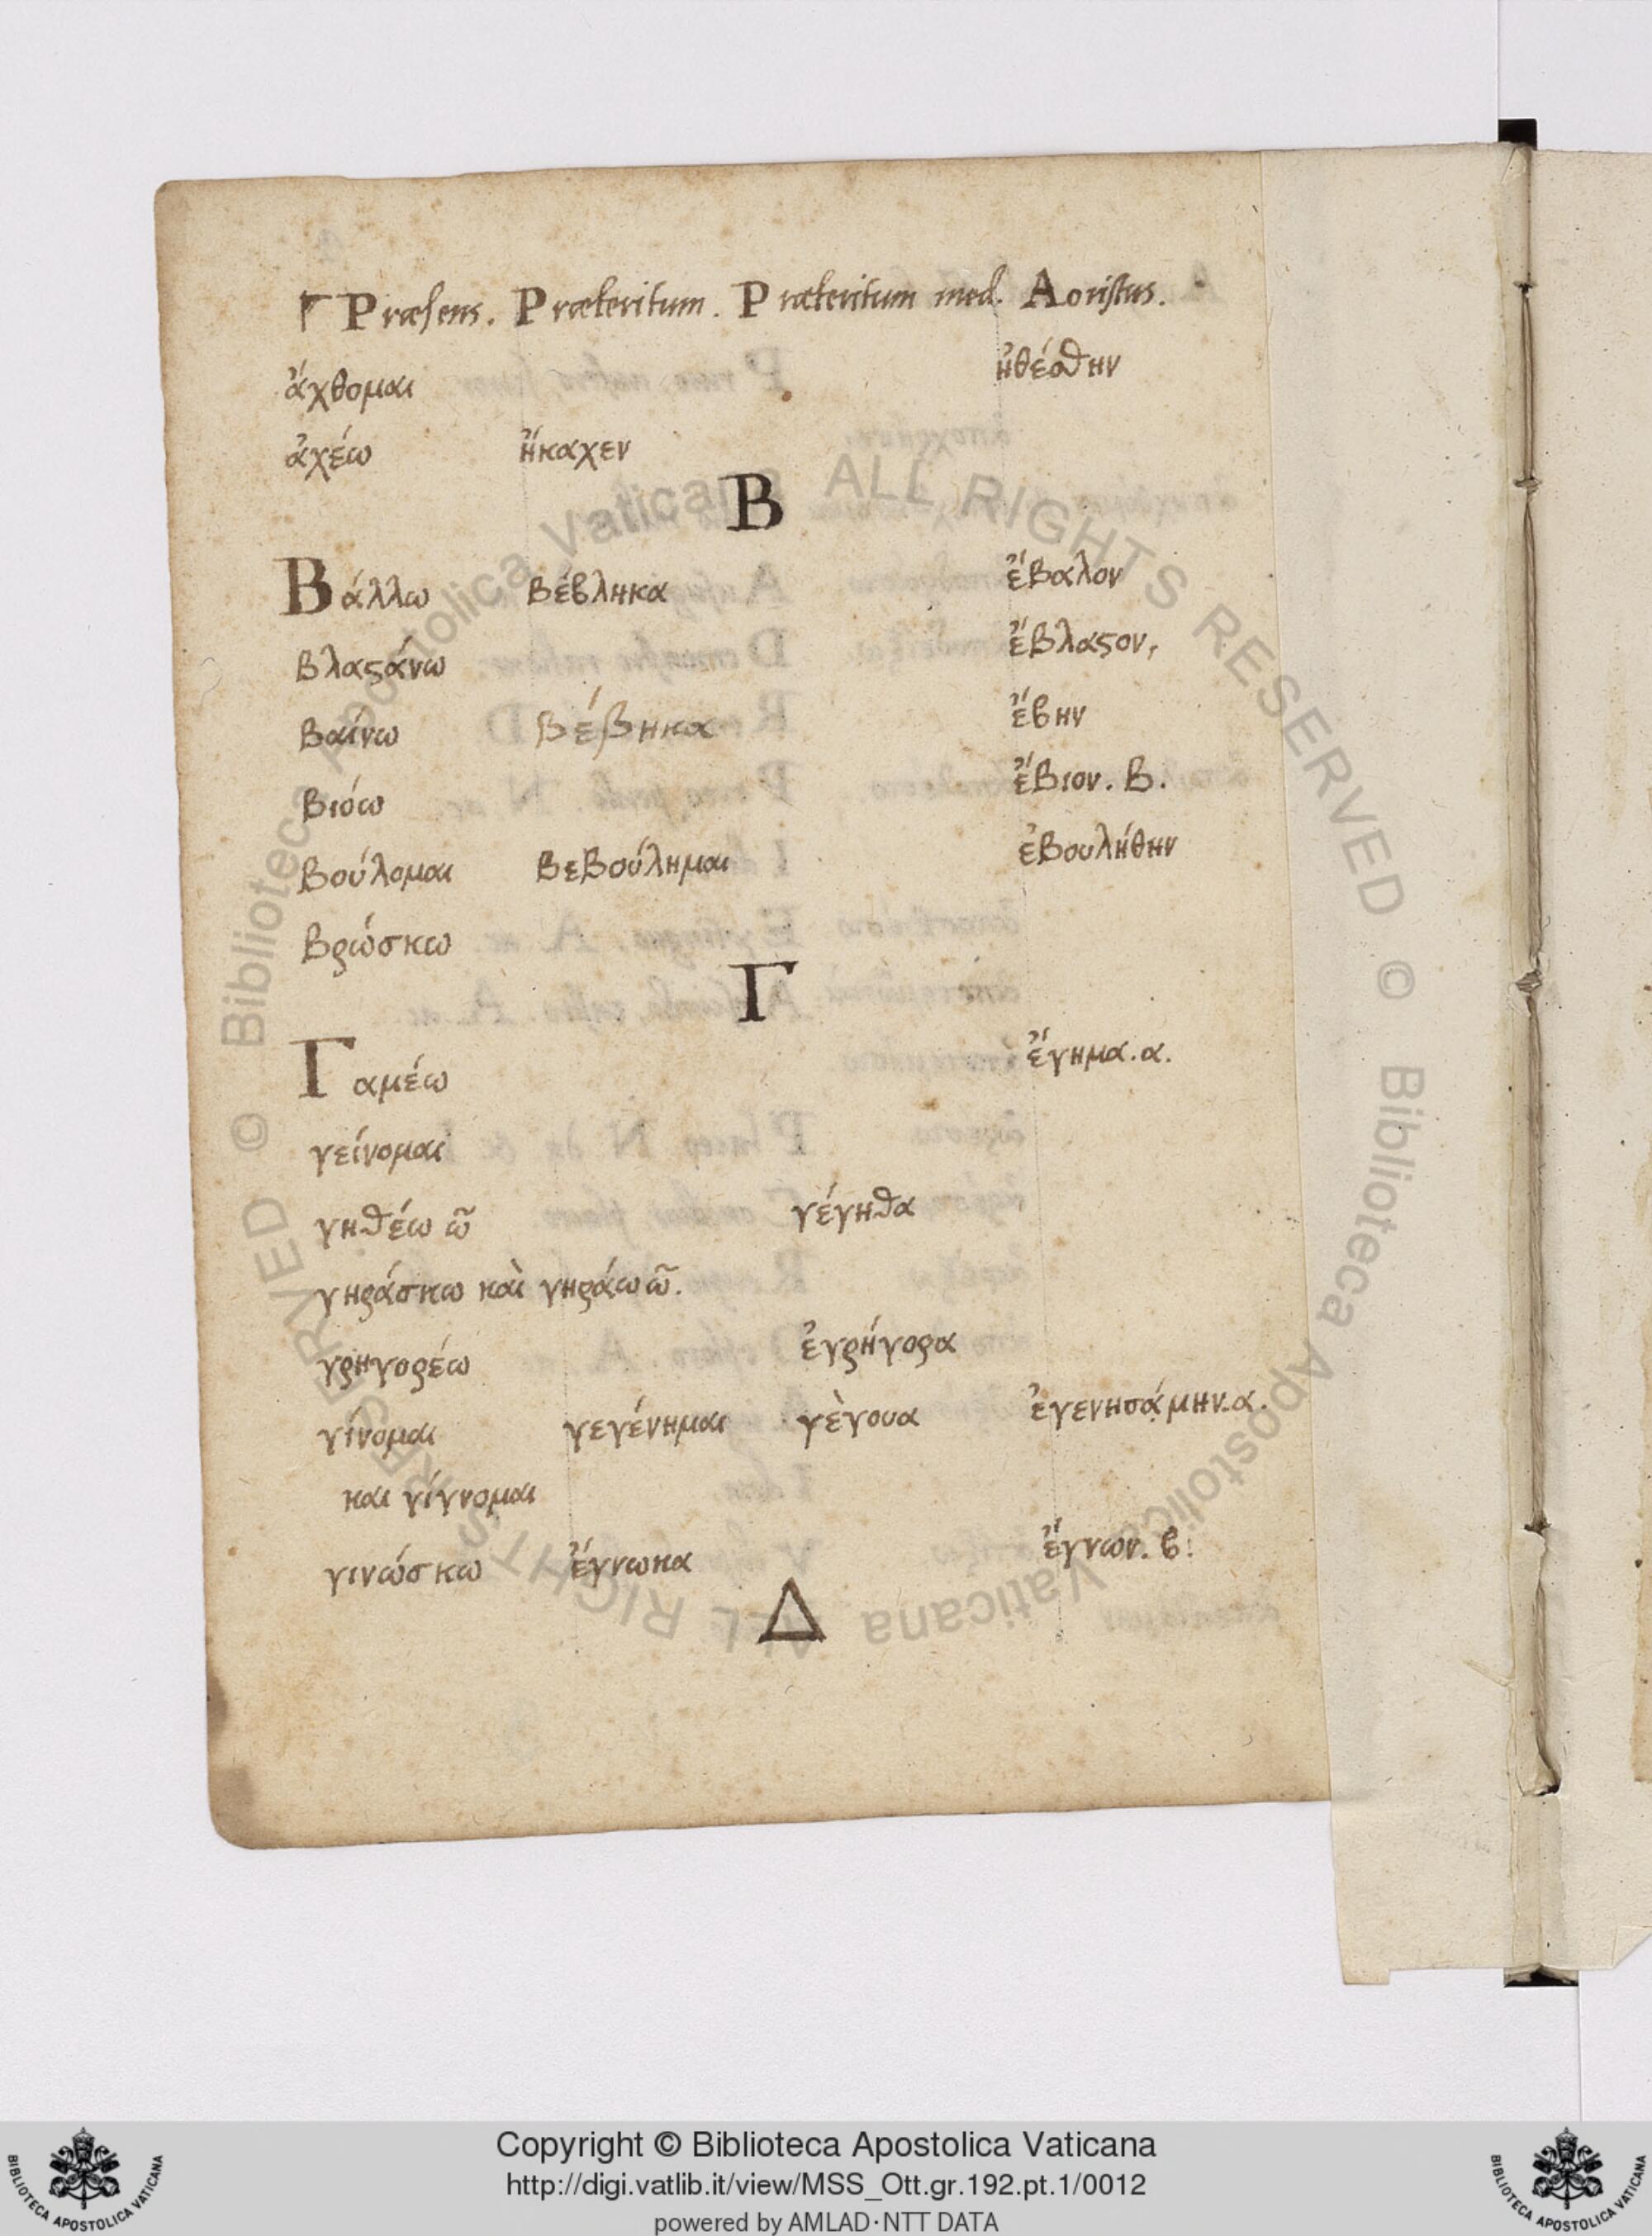 Γ Præsens. Præteritum. Præteritum med. Aoristus.
ἄχθομαι ἠθέσθην
ἀχέω ἤκαχεν
Β
Βάλλω βέβληκα ἔβαλον
βλαϛάνω ἔβλαϛον,
βαίνω βέβηκα ἔβην
βιόω ἔβιον. β.
βούλομαι βεβούλημαι ἐβουλήθην
βρώσκω
Γ
Γαμέω ἔγημα. α.
γείνομαι
γηθέω ῶ γέγηθα
γηράσκω καὶ γηράω ῶ.
γρηγορέω ἐγρήγορα
γίνομαι γεγένημαι γὲγουα ἐγενησάμην. α.
και γίγνομαι
γινώσκω ἔγνωκα ἔγνων. β.
Δ
© Biblioteca Apostolica Vaticana ALL RIGHTS RESERVED © Biblioteca Apostolica Vaticana ALL RIGHTS RESERVED
Copyright © Biblioteca Apostolica Vaticana
http://digi.vatlib.it/view/MSS_Ott.gr.192.pt.1/0012
powered by AMLAD·NTT DATA
BIBLIOTECA APOSTOLICA VATICANA
BIBLIOTECA APOSTOLICA VATICANA